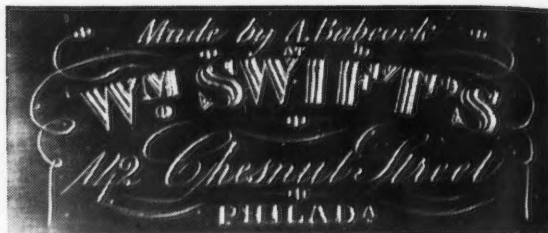 Made by A. Babcock
AT
WM. SWIFT'S
112 Chesnut Street
PHILADA